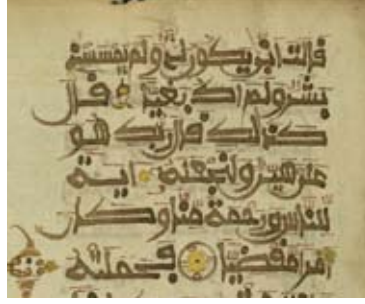 قالت انى يكون لى ولد ولم يمسسنى
بشر ولم اك بغيا قال
كذلك قال ربك هو
على هين ولنجعله اية
للناس ورحمة منا وكان
امرا مقضيا فحملته